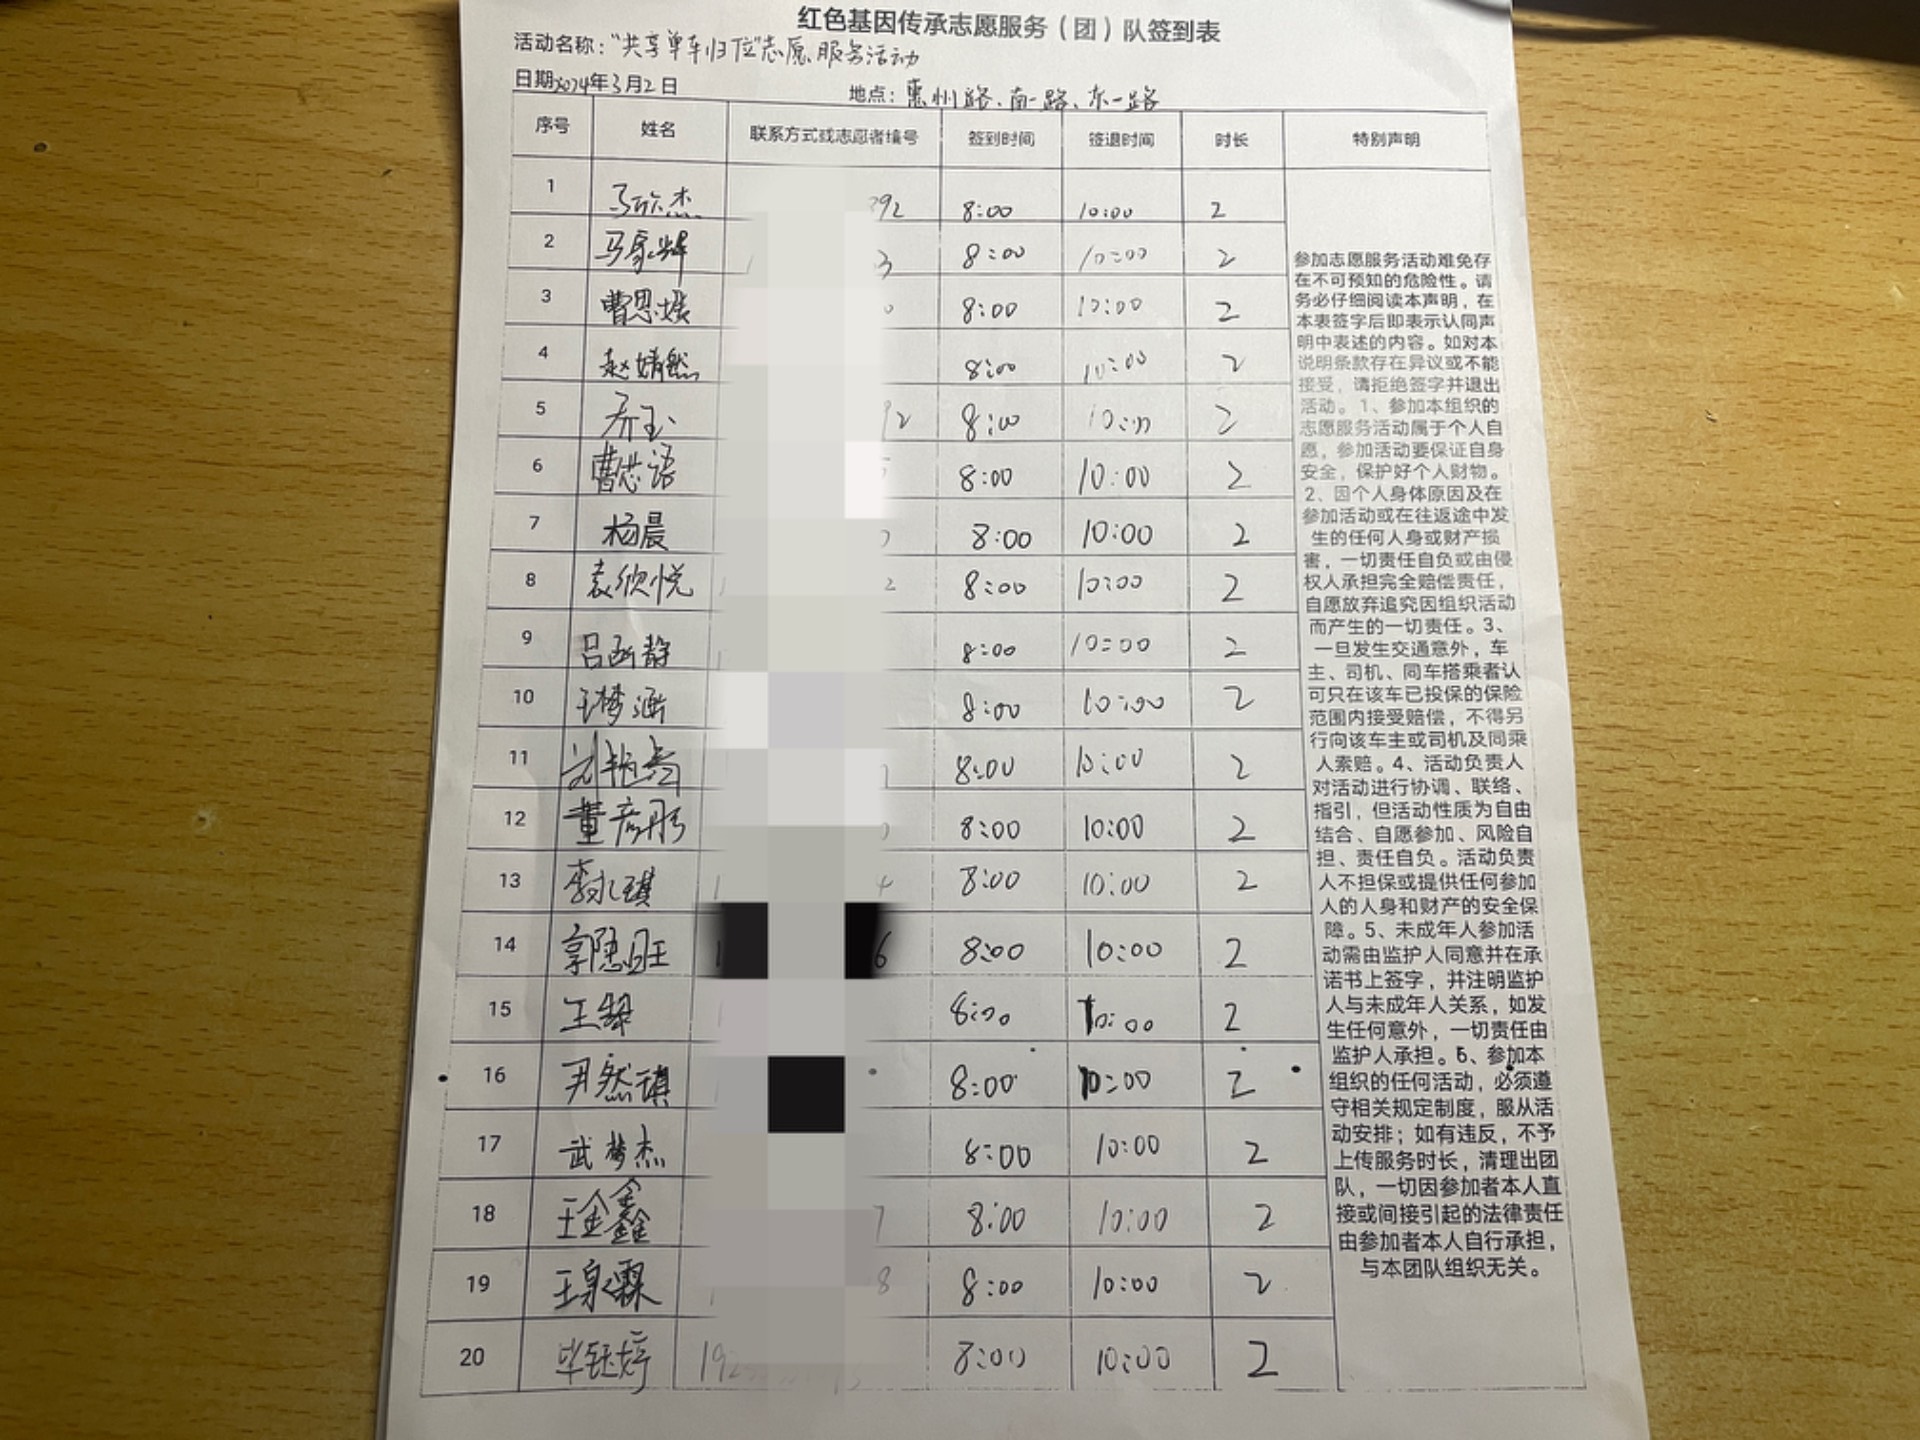 红色基因传承志愿服务（团）队签到表
活动名称：“共享单车归位”志愿服务活动
日期2024年3月2日 地点：惠州路、南一路、东一路
序号 姓名 联系方式或志愿者编号 签到时间 签退时间 时长 特别声明
1 马欣杰 92 8:00 10:00 2
2 马家辉 3 8:00 10:00 2
3 曹思媛 8:00 10:00 2
4 赵婧然 8:00 10:00 2
5 乔玉 92 8:00 10:00 2
6 曹芯语 8:00 10:00 2
7 杨晨 8:00 10:00 2
8 袁欣悦 2 8:00 10:00 2
9 吕函静 8:00 10:00 2
10 王梦涵 8:00 10:00 2
11 刘艳 8:00 10:00 2
12 董彦彤 8:00 10:00 2
13 李永琪 1 4 8:00 10:00 2
14 郭陆旺 1 6 8:00 10:00 2
15 王 8:00 10:00 2
16 尹然琪 8:00 10:00 2
17 武梦杰 8:00 10:00 2
18 王金鑫 7 8:00 10:00 2
19 王泉霖 8 8:00 10:00 2
20 毕钰婷 192 8:00 10:00 2
参加志愿服务活动难免存
在不可预知的危险性。请
务必仔细阅读本声明，在
本表签字后即表示认同声
明中表述的内容。如对本
说明条款存在异议或不能
接受，请拒绝签字并退出
活动。1、参加本组织的
志愿服务活动属于个人自
愿，参加活动要保证自身
安全，保护好个人财物。
2、因个人身体原因及在
参加活动或在往返途中发
生的任何人身或财产损
害，一切责任自负或由侵
权人承担完全赔偿责任，
自愿放弃追究因组织活动
而产生的一切责任。3、
一旦发生交通意外，车
主、司机、同车搭乘者认
可只在该车已投保的保险
范围内接受赔偿，不得另
行向该车主或司机及同乘
人索赔。4、活动负责人
对活动进行协调、联络、
指引，但活动性质为自由
结合、自愿参加、风险自
担、责任自负。活动负责
人不担保或提供任何参加
人的人身和财产的安全保
障。5、未成年人参加活
动需由监护人同意并在承
诺书上签字，并注明监护
人与未成年人关系，如发
生任何意外，一切责任由
监护人承担。6、参加本
组织的任何活动，必须遵
守相关规定制度，服从活
动安排；如有违反，不予
上传服务时长，清理出团
队，一切因参加者本人直
接或间接引起的法律责任
由参加者本人自行承担，
与本团队组织无关。